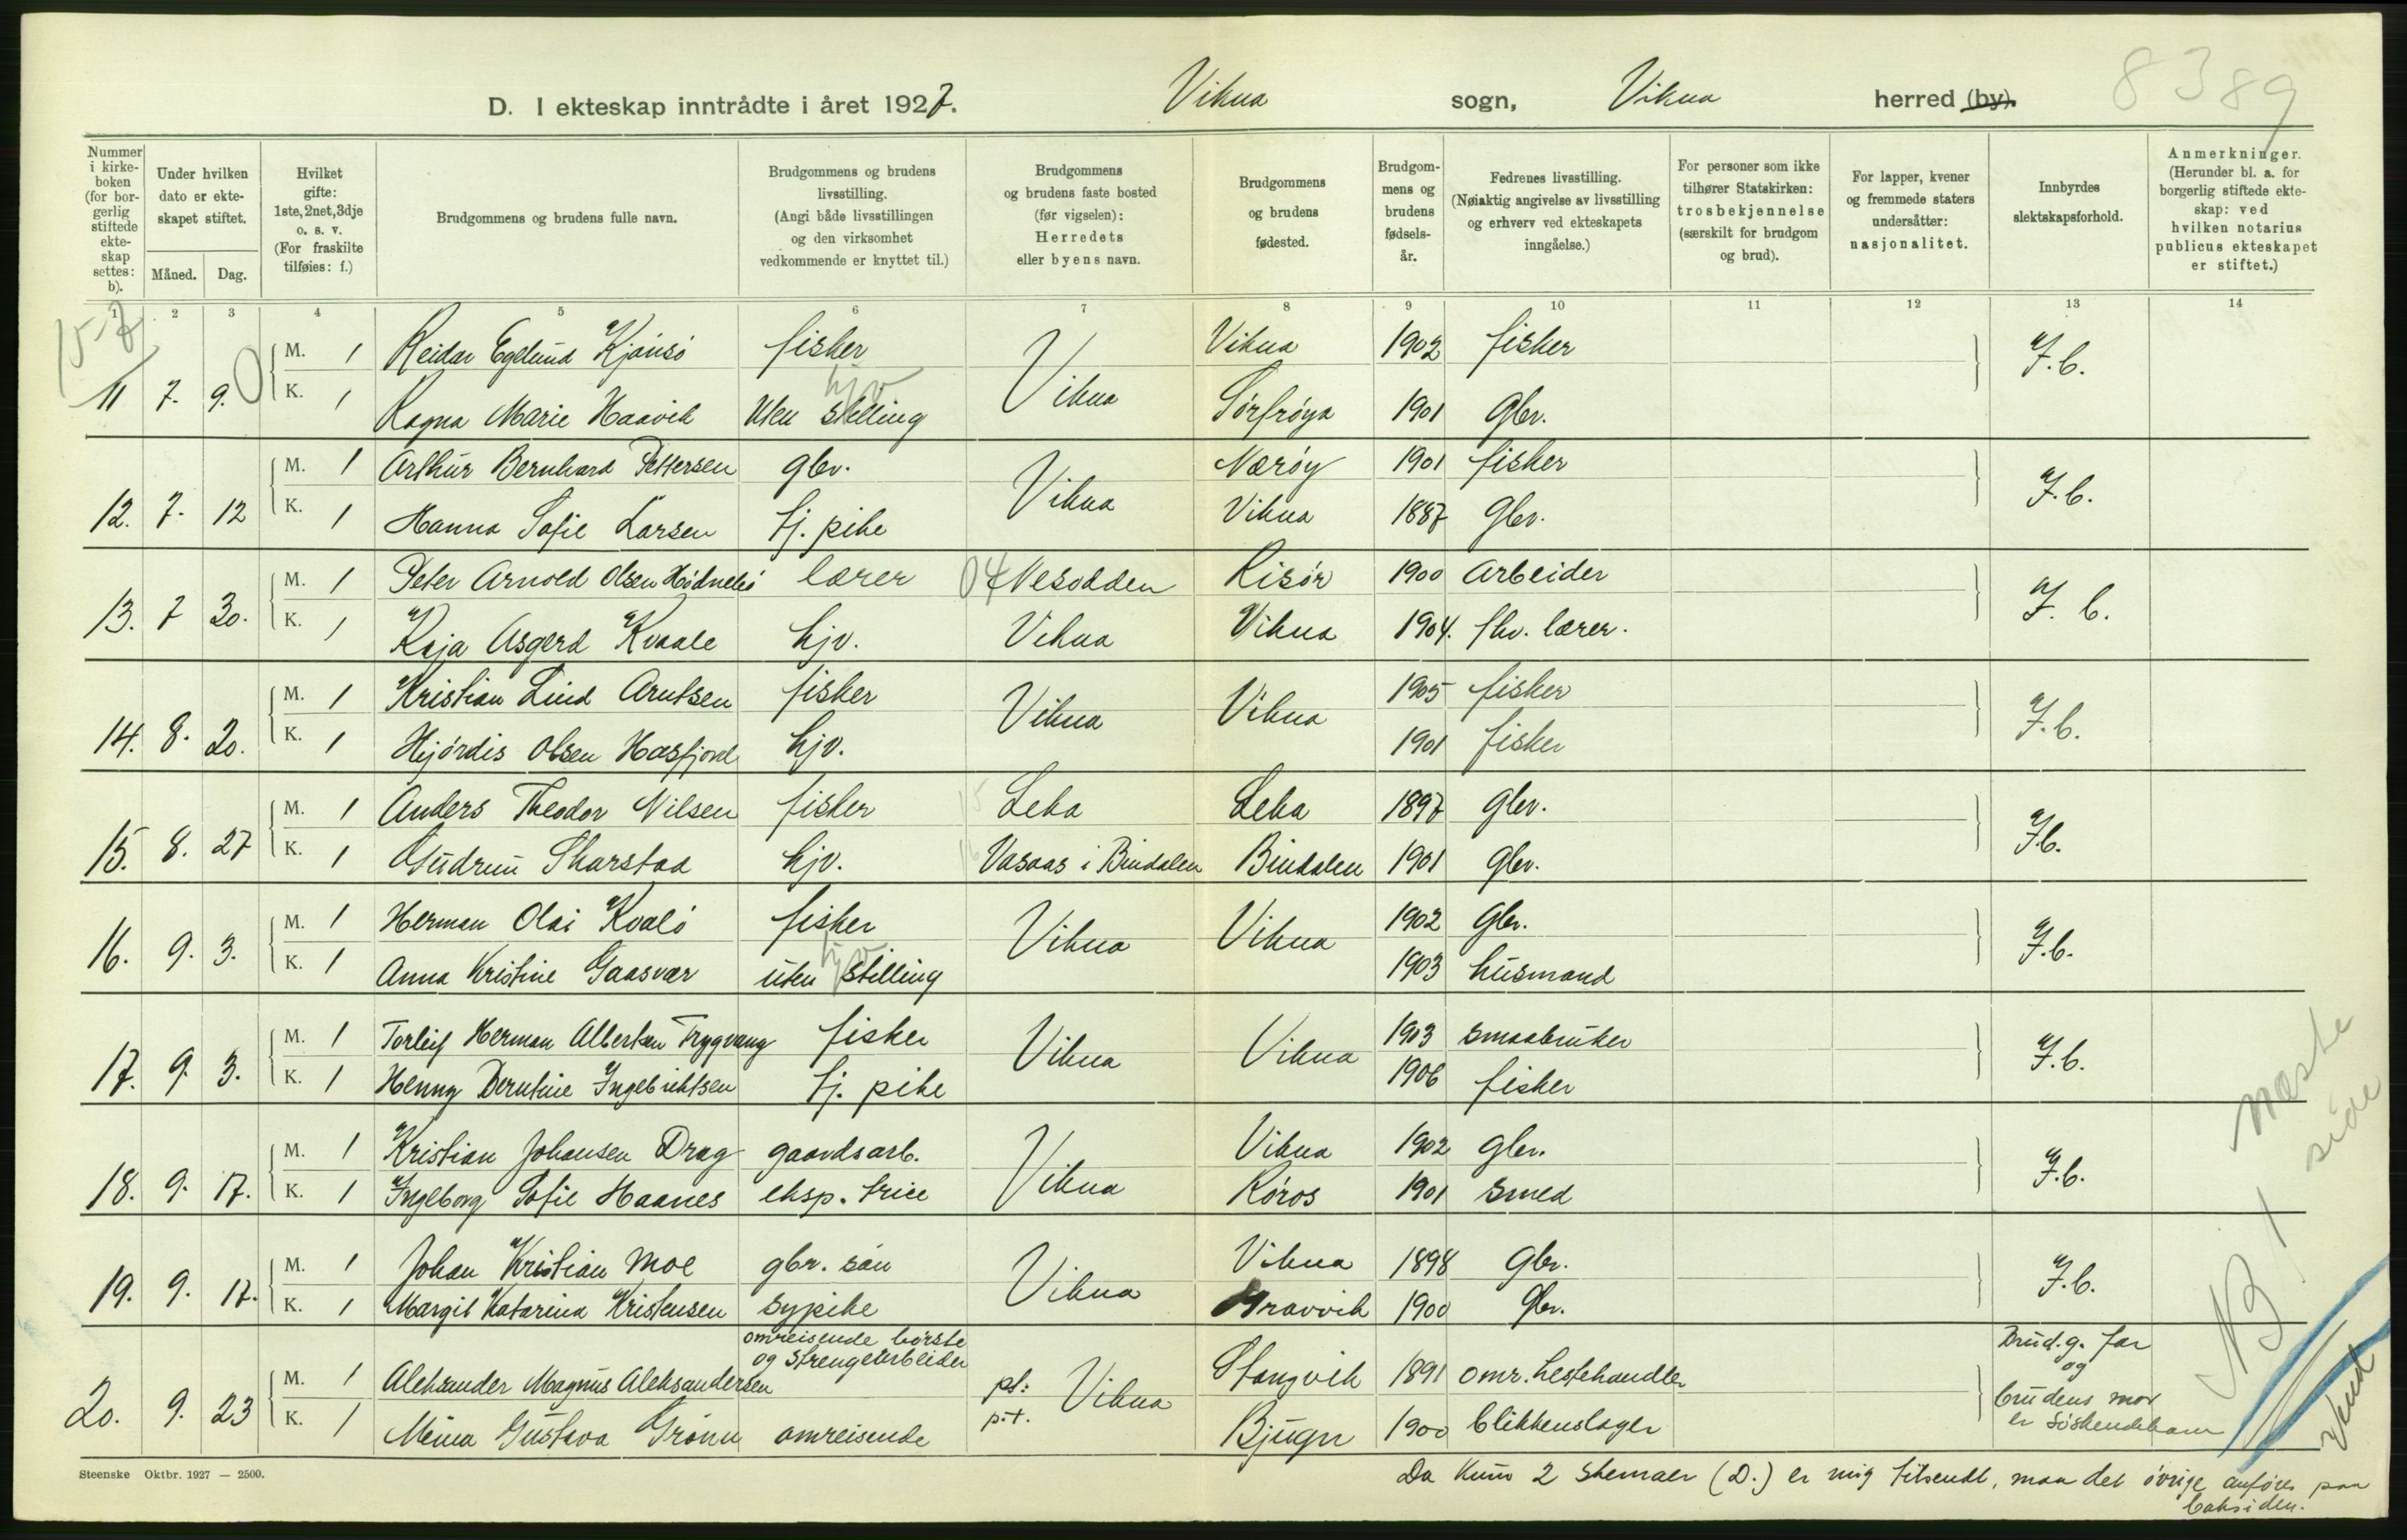 8389
D. I ekteskap inntrådte i året 1927. Vikna sogn, Vikna herred (by).
Nummer i kirkeboken (for borgerlig stiftede ekteskap settes: b).
Under hvilken dato er ekteskapet stiftet.
Måned. Dag.
Hvilket gifte: 1ste, 2net, 3dje o. s. v. (For fraskilte tilføies: f.)
Brudgommens og brudens fulle navn.
Brudgommens og brudens livsstilling. (Angi både livsstillingen og den virksomhet vedkommende er knyttet til.)
Brudgommens og brudens faste bosted (før vigselen): Herredets eller byens navn.
Brudgommens og brudens fødested.
Brudgommens og brudens fødselsår.
Fedrenes livsstilling. (Nøiaktig angivelse av livsstilling og erhverv ved ekteskapets inngåelse.)
For personer som ikke tilhører Statskirken: trosbekjennelse (særskilt for brudgom og brud).
For lapper, kvener og fremmede staters undersåtter: nasjonalitet.
Innbyrdes slektskapsforhold.
Anmerkninger. (Herunder bl. a. for borgerlig stiftede ekteskap: ved hvilken notarius publicus ekteskapet er stiftet.)
1 2 3 4 5 6 7 8 9 10 11 12 13 14
15-7
M. 1 Reidar Egelund Kjønsö fisker Vikna 1902 fisker
11 7. 9. Vikna I.b.
K. 1 Ragna Marie Haavik Uten stilling hjv Sörfröya 1901 Gbr.
M. 1 Arthur Bernhard Pettersen gbr. Næröy 1901 fisker
12. 7. 12 Vikna I.b.
K. 1 Hanna Sofie Larsen tj. pike Vikna 1887 Gbr.
M. 1 Peter Arnold Olsen Hödnebö lærer 04 Nesodden Risör 1900 Arbeider
13. 7 30. I. b.
K. 1 Kaja Asgerd Kvaale hjv. Vikna Vikna 1904. fhv. lærer.
M. 1 Kristian Lind Arntsen fisker 1905 fisker
14. 8. 20. Vikna Vikna I.b.
K. 1 Hjördis Olsen Hasfjord hjv. 1901 fisker
M. 1 Anders Theodor Nilsen fisker Leka Leka 1897 Gbr.
15. 8. 27 I.b.
K. 1 Gudrun Skarstad hjv. Vasaas i Bindalen Bindalen 1901 Gbr.
M. 1 Herman Olai Kvalö fisker 1902 Gbr.
16. 9. 3. Vikna Vikna I.b.
K. 1 Anna Kristine Gaasvær uten stilling hjv 1903 husmand
M. 1 Torleif Herman Albertsen Trygvang fisker 1903 smaabruker
17. 9. 3. Vikna Vikna I.b.
K. 1 Henny Berntine Ingebriktsen tj. pike 1906 fisker
M. 1 Kristian Johansen Drag gaardsarb. Vikna 1902 gbr.
18. 9. 17. Vikna I.b.
K. 1 Ingeborg Sofie Haanes eksp. trice Röros 1901 smed
M. 1 Johan Kristian Moe gbr. sön Vikna 1898 Gbr.
19. 9. 17. Vikna I.b.
K. 1 Margit Katarina Kristensen sypike Gravvik 1900 Gbr.
M. 1 Aleksander Magnus Aleksandersen omreisende börste og strengearbeider pt: Stangvik 1891 omr. hestehandler
20. 9. 23 Vikna Brud.g. far og brudens mor er söskendebarn
K. 1 Mina Gustava Grönn omreisende p.t. Bjugn 1900 blikkenslager
næste side
NB!
Vend
Steenske Oktbr. 1927 — 2500.
Da kun 2 skemaer (D.) er mig tilsendt, maa det övrige anföres paa
baksiden.